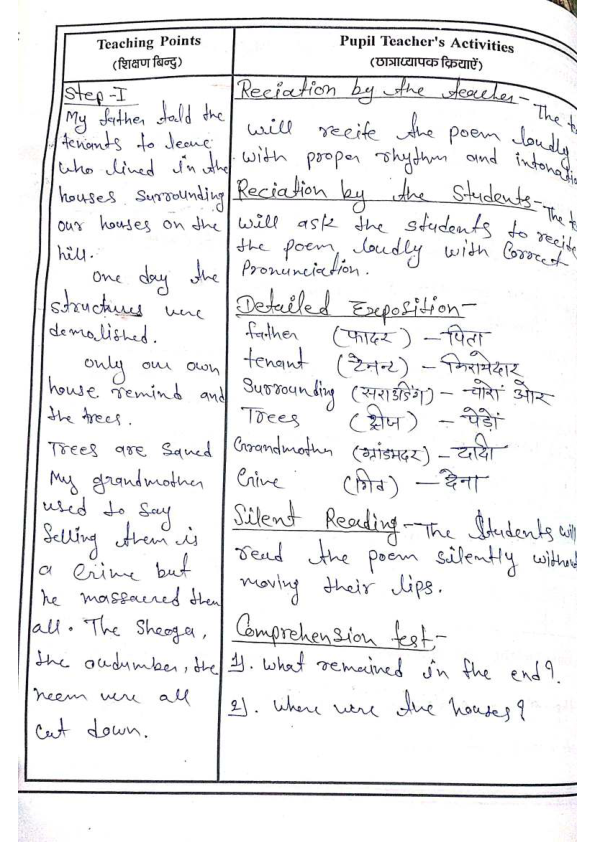 Teaching Points
(शिक्षण बिन्दु)
Step-I
My father tald the
tenants to leave
who lived in the
houses surrounding
our houses on the
hill.
One day the
structures were
demalished.
only our own
house remind and
the trees.
Trees are saved
My grandmother
used to say
Selling them is
a Crime but
he massacred them
all. The Sheoga,
the oudumber, the
neem were all
cut down.
Pupil Teacher's Activities
(छात्राध्यापक क्रियाऐं)
Reciation by the teacher - The t
will recite the poem loudly
with proper rhythm and intonatio
Reciation by the Students - The t
will ask the students to recite
the poem loudly with Correct
Pronunciation.
Detailed Exposition -
father (फादर) - पिता
tenant (टैनन्ट) - किरामेदार
Surrounding (सराउडिंग) - चोरों ओर
Trees (ट्रीज) - पेड़ों
Grandmother (ग्रांडमदर) - दादी
Give (गिव) - देना
Silent Reading - The Students will
read the poem silently without
moving their lips.
Comprehension test -
1). what remained in the end?
2). where were the houses?